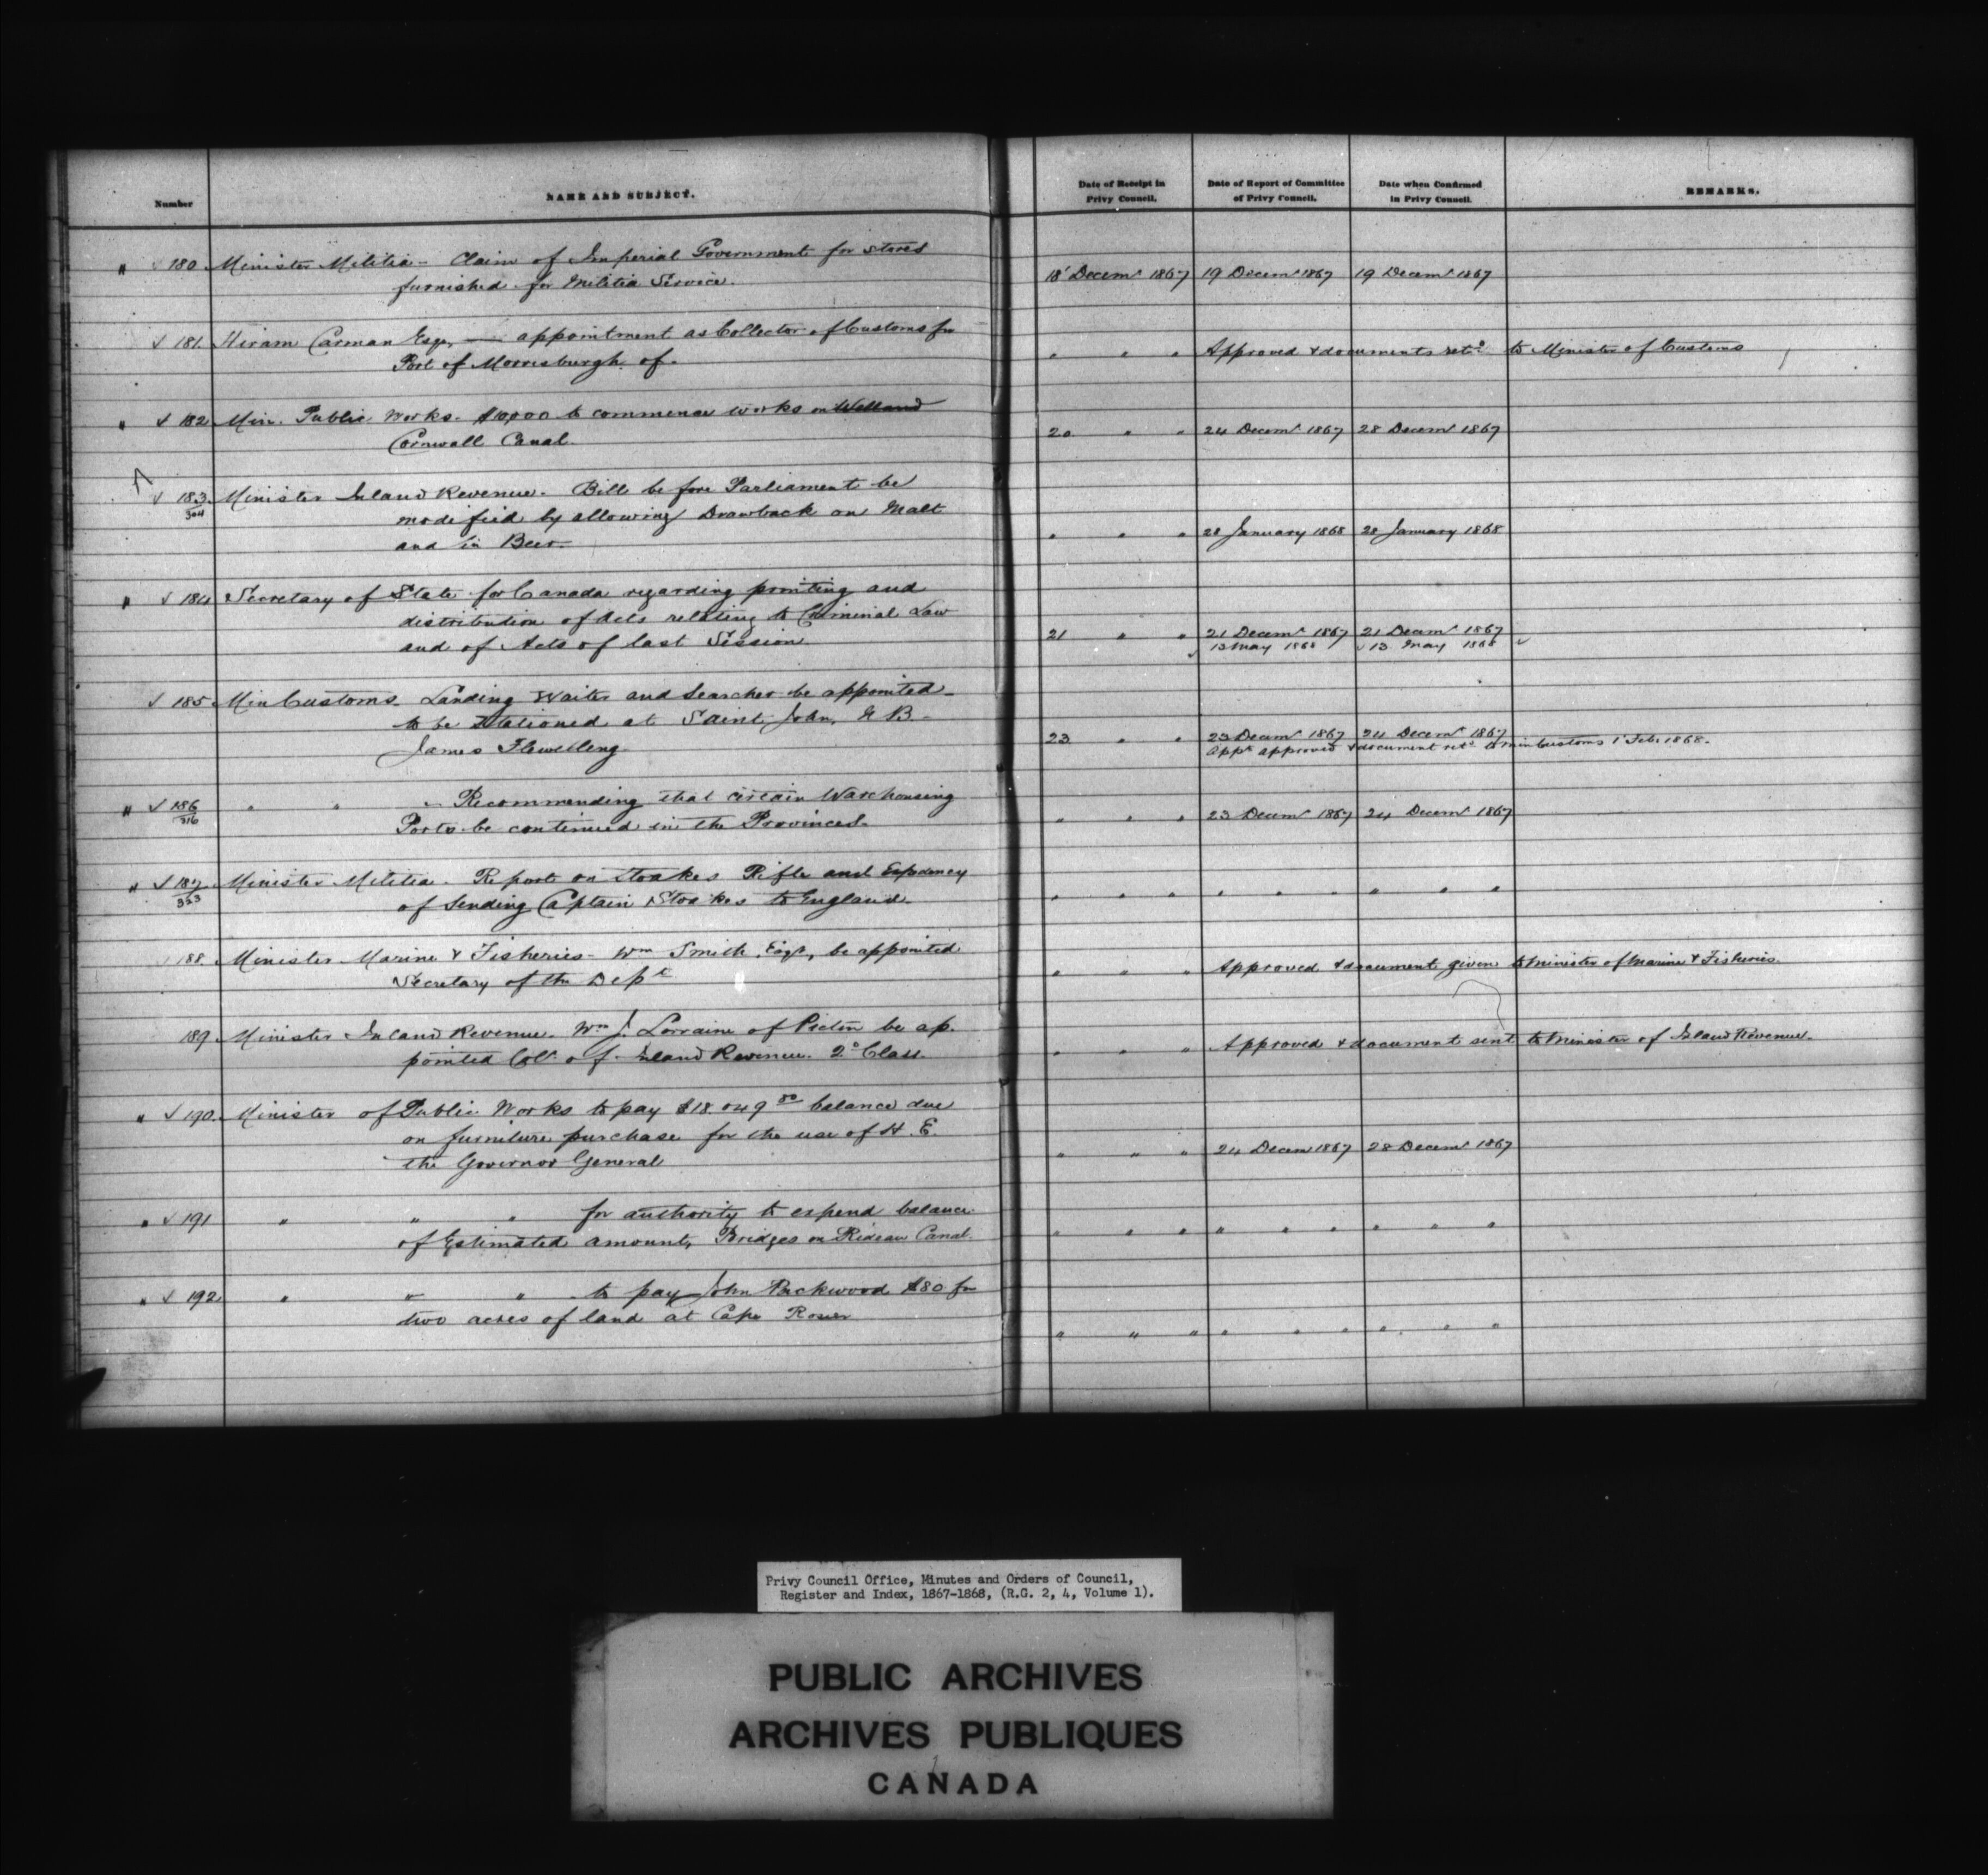 Number
NAME AND SUBJECT.
Date of Receipt in Privy Council.
Date of Report of Committee of Privy Council.
Date when Confirmed in Privy Council.
REMARKS.
" √ 180 Minister Militia - Claim of Imperial Government for stores 
furnished for Militia Service. 18 Decemr 1867 19 Decemr 1867 19 Decemr 1867
√ 181. Hiram Carman Esqr, — appointment as Collector of Customs for
Port of Morrisburgh of. " " " Approved & documents retd to Minister of Customs
" √ 182 Min. Public Works. $10,000 to commence works on Welland
Cornwall Canal. 20 " " 24 Decemr 1867 28 Decemr 1867
√ 183. Minister Inland Revenue. Bill before Parliament be
304 modified by allowing Drawback on Malt
and in Beer. " " " 28 January 1868 28 January 1868
" √ 184 Secretary of State for Canada regarding printing and
distribution of Acts relating to Criminal Law
and of Acts of last Session 21 " " 21 Decemr 1867 21 Decemr 1867
√ 13 May 1868 √ 13 May 1868 √
√ 185 Min Customs. Landing Waiter and Searcher be appointed
to be Stationed at Saint John, N B -
James Flewelling 23 " " 23 Decemr 1867 24 Decemr 1867
Appt approved & document retd to min Customs 1 Feb. 1868.
" √ 186 " " " Recommending that certain Warehousing
316 Ports be continued in the Provinces. " " " 23 Decemr 1867 24 Decemr 1867
" √ 187 Minister Militia. Report on Stoakes Rifle and Expediency
353 of Sending Captain Stoakes to England. " " " " " " " " "
188. Minister Marine & Fisheries - Wm Smith Esqr, be appointed
Secretary of the Dept " " " Approved & document given to Minister of Marine & Fisheries.
189 Minister Inland Revenue. Wm J. Lorraine of Picton be ap-
pointed Colr of Inland Revenue. 2d Class. " " " Approved & document sent to Minister of Inland Revenue.
" √ 190. Minister of Public Works to pay $18.049 80 balance due
on furniture purchase for the use of H. E.
the Governor General " " " 24 Decem 1867 28 Decemr 1867
" √ 191 " " " for authority to expend balance
of Estimated amount, Bridges on Rideau Canal. " " " " " " " " "
" √ 192 " " " to pay John Packwood $80 for
two acres of land at Cape " " " " " " " " "
Privy Council Office, Minutes and Orders of Council,
Register and Index, 1867-1868, (R.G. 2, 4, Volume 1).
PUBLIC ARCHIVES
ARCHIVES PUBLIQUES
CANADA